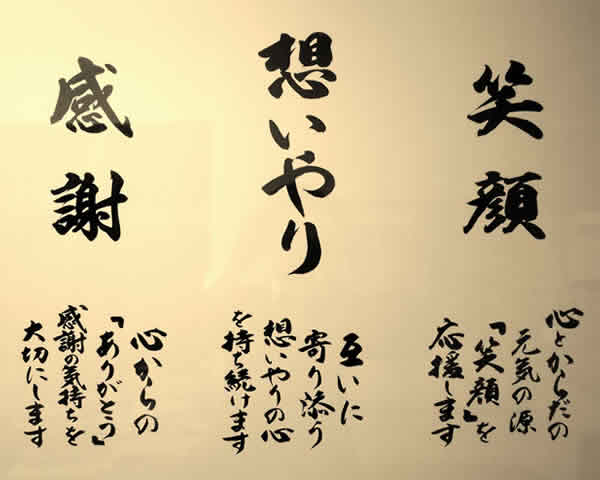 笑顔
心とからだの
元気の源
「笑顔」を
応援します
想いやり
互いに
寄り添う
想いやりの心
を持ち続けます
感謝
心からの
「ありがとう」
感謝の気持ちを
大切にします